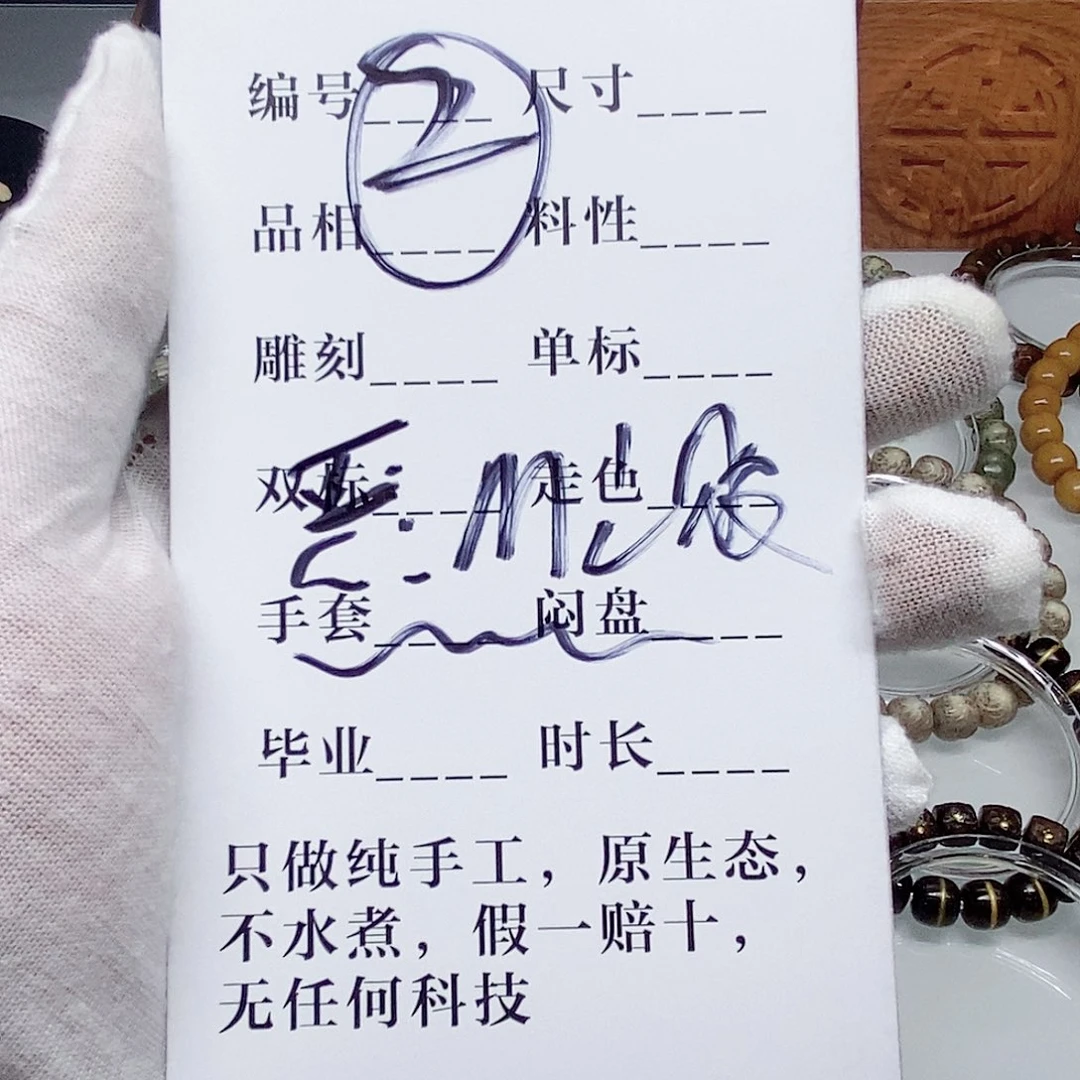 编号____ 尺寸____
2
品相____ 料性____
雕刻____ 单标____
双标____ 走色____
手套____ 闷盘____
毕业____ 时长____
只做纯手工，原生态，
不水煮，假一赔十，
无任何科技